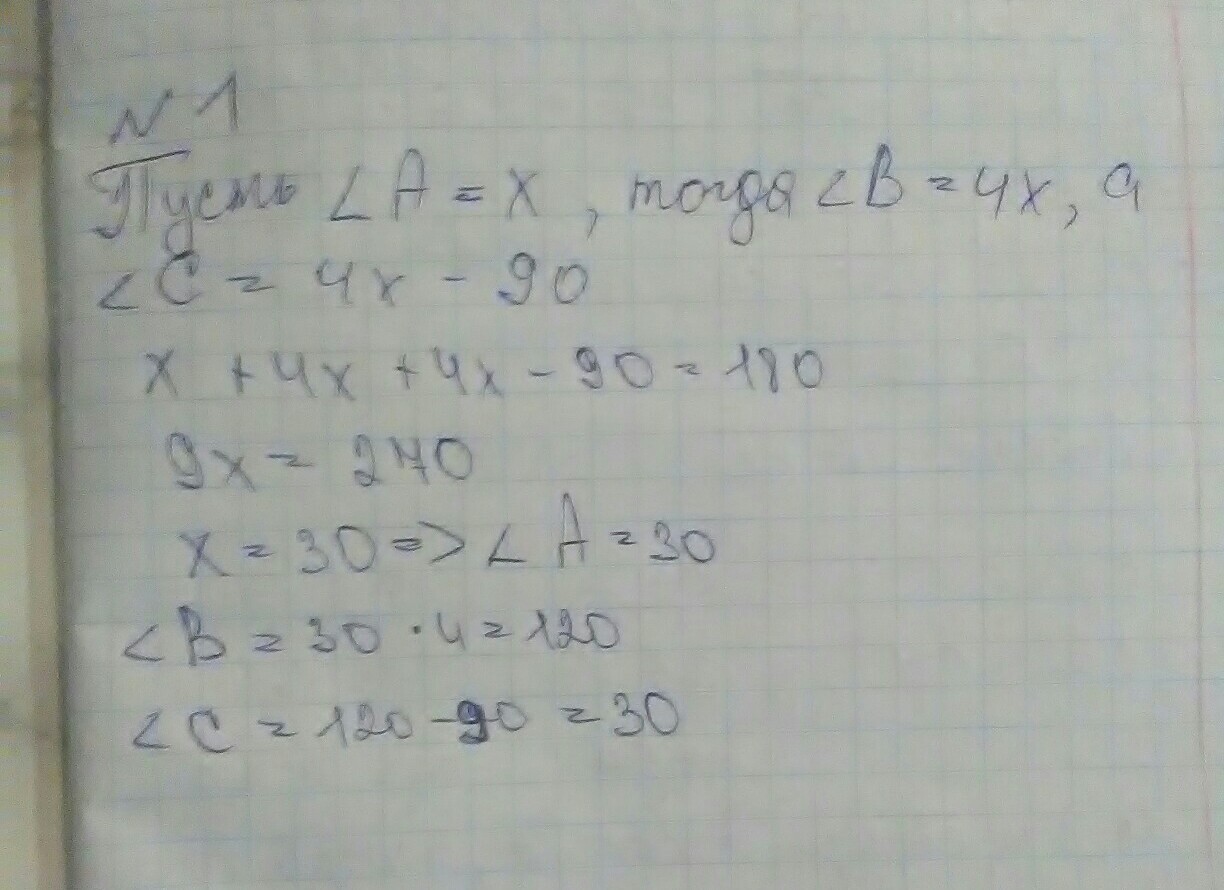 N 1
Пусть ∠A = x, тогда ∠B = 4x, а
∠C = 4x - 90
x + 4x + 4x - 90 = 180
9x = 270
x = 30 => ∠A = 30
∠B = 30 · 4 = 120
∠C = 120 - 90 = 30